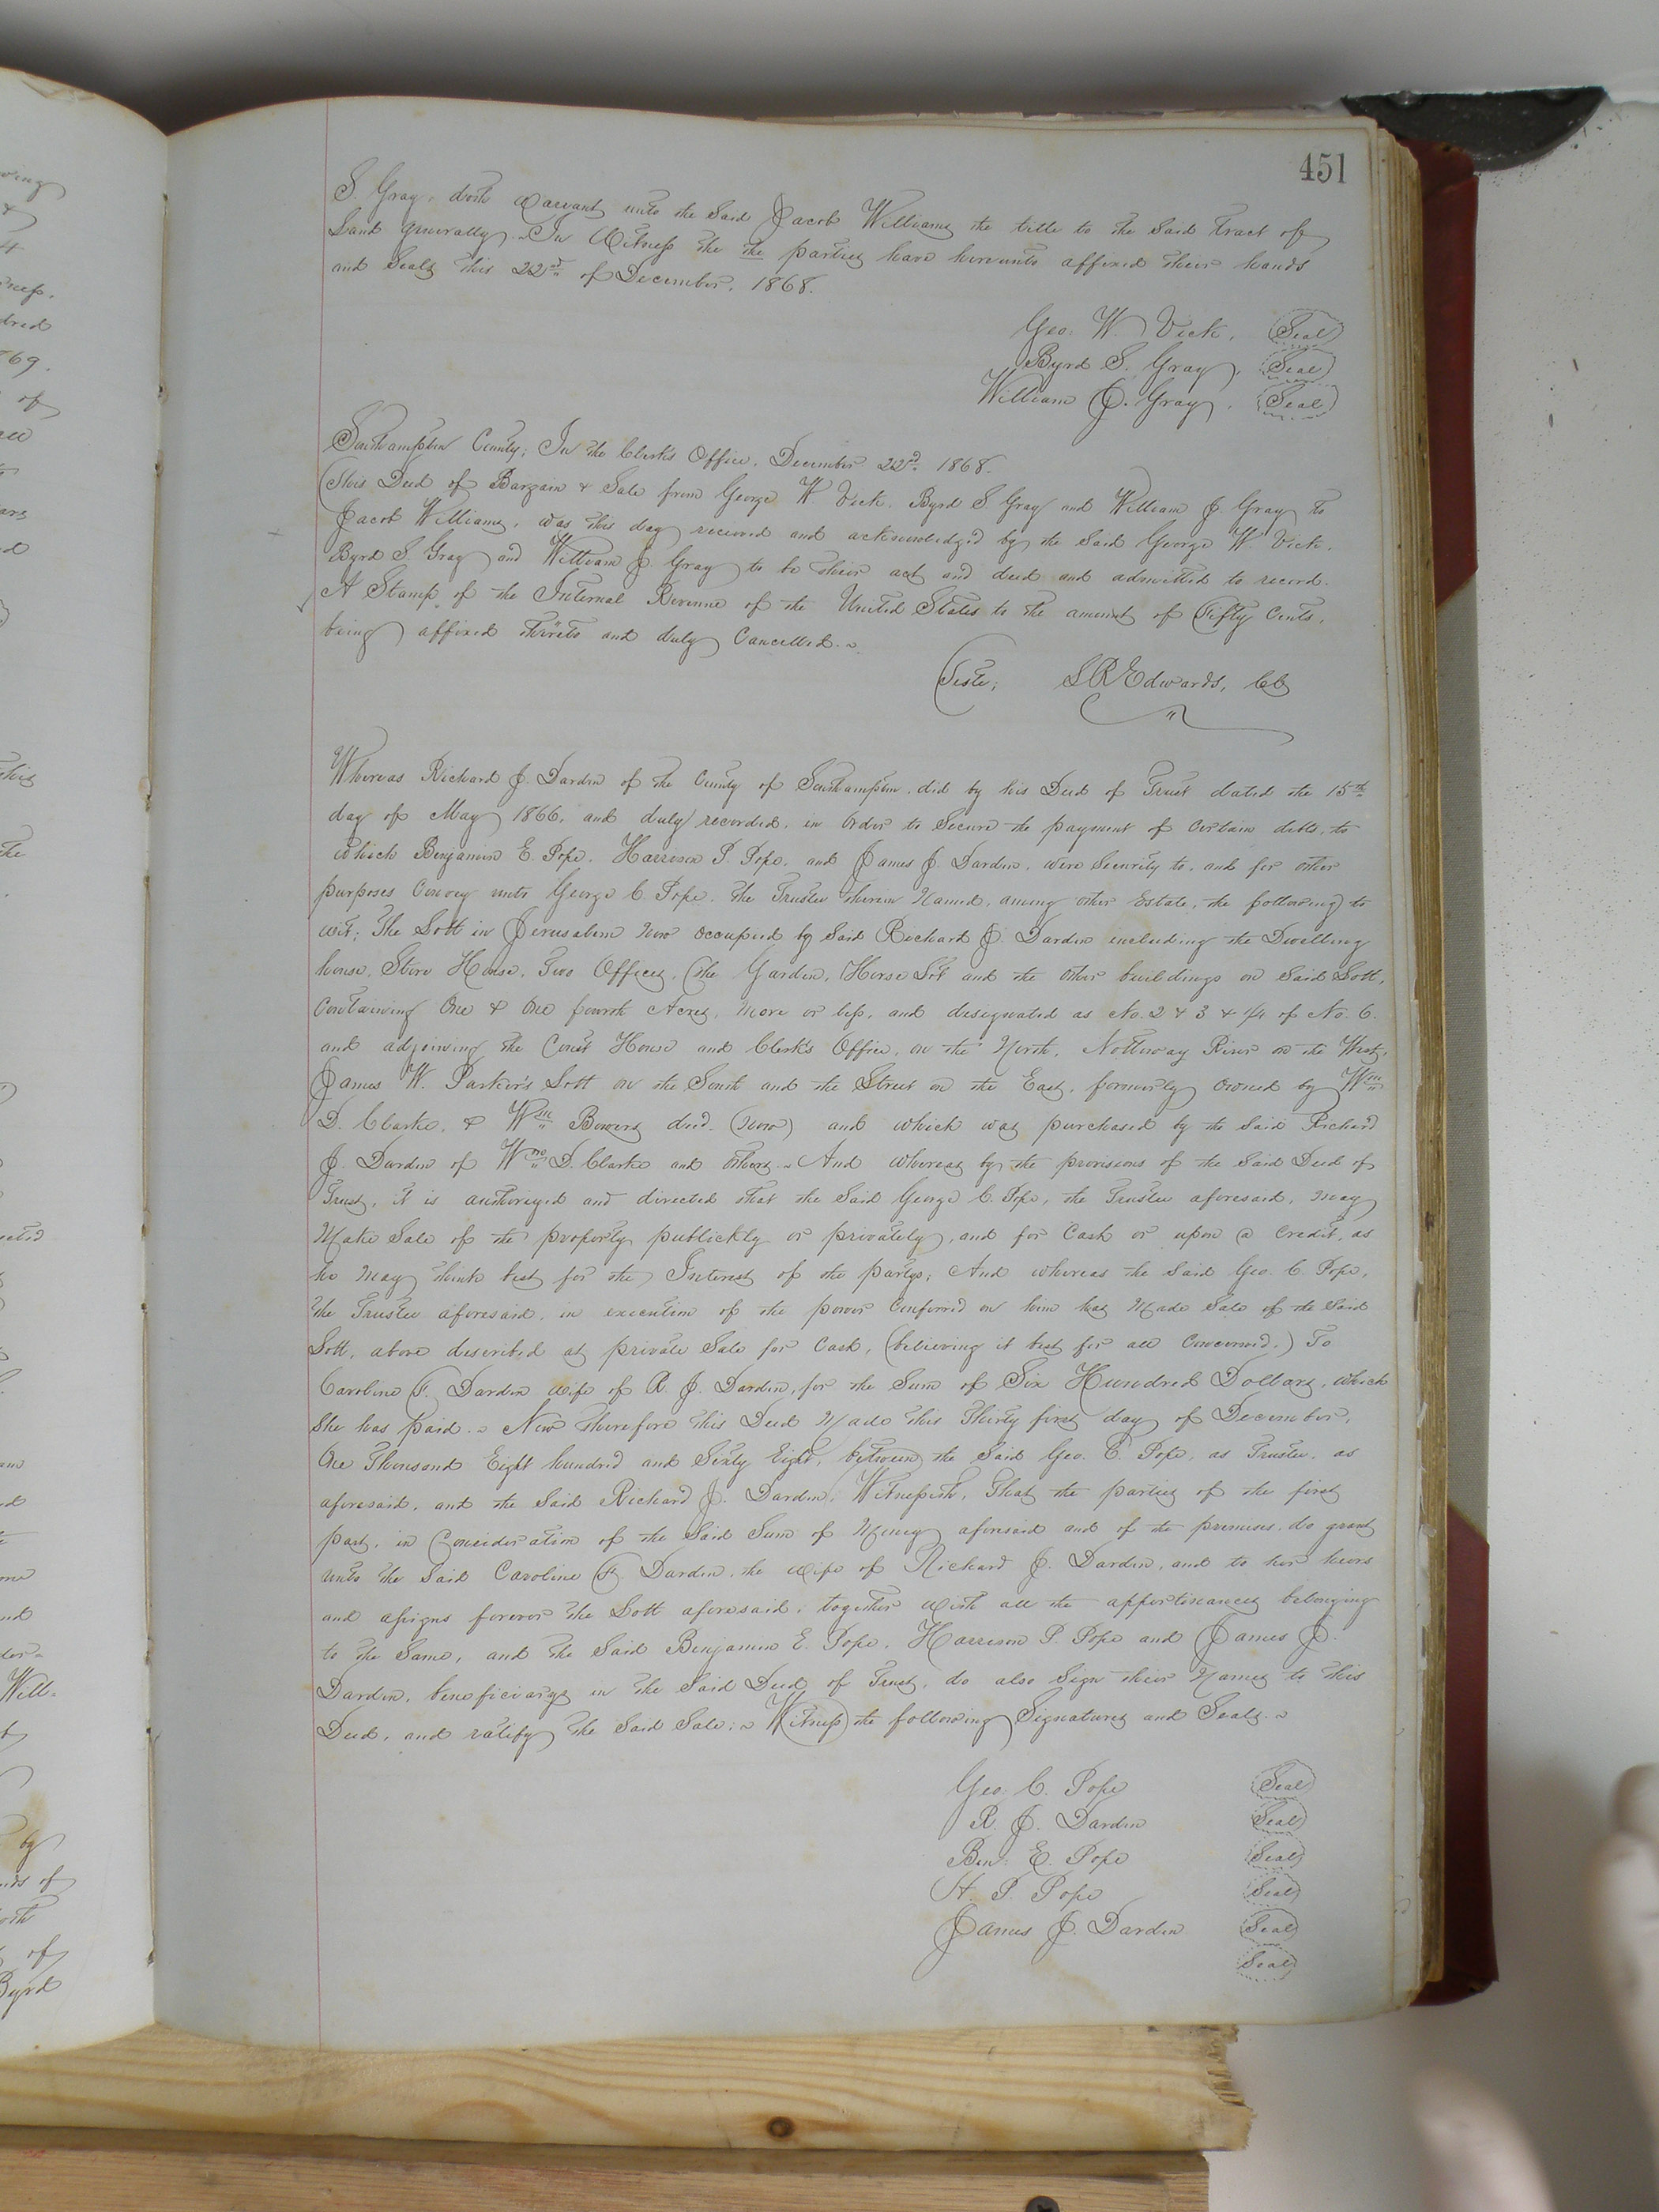 451
S. Gray, doth Warrant unto the Said Jacob Williams the title to the Said tract of
Land Generally. ~ In Witness the the parties have hereunto affixed their hands
and Seals this 22nd of December, 1868.
Geo: W. Vick. Seal
Byrd S. Gray. Seal
William J. Gray. Seal
Southampton County; In the Clerk's Office, December 22nd 1868.
This Deed of Bargain & Sale from George W Vick, Byrd S Gray and William J. Gray to
Jacob Williams, was this day received and acknowledged by the Said George W. Vick,
Byrd S. Gray and William J. Gray to be their act and deed and admitted to record.
A Stamp of the Internal Revenue of the United States to the amount of Fifty Cents,
being affixed thereto and duly Cancelled. ~
Teste; L R Edwards, Clk
Whereas Richard J. Darden of the County of Southampton, did by his Deed of Trust dated the 15th
day of May 1866, and duly recorded, in order to Secure the payment of Certain debts, to
which Benjamin E. Pope, Harrison P. Pope, and James J. Darden, were Security to, and for other
purposes Convey unto George C. Pope, the Trustee therein Named, among other Estate, the following to
wit; The Lott in Jerusalem Now occupied by Said Richard J. Darden including the Dwelling
house, Store House, Two Offices, The Garden, Horse Lot and the other buildings on Said Lott,
Containing One & One fourth Acres, More or less, and designated as No. 2 & 3 & 1/4 of No. 6.
and adjoining the Court House and Clerk's Office, on the North, Nottoway River on the West,
James W. Parker's Lott on the South and the Street on the East, formerly owned by Wm
D. Clarke, & Wm Bowers decd. (now) and which was purchased by the Said Richard
J. Darden of Wm D. Clarke and others. ~ And whereas by the provisions of the Said Deed of
Trust, it is authorized and directed that the Said George C. Pope, the Trustee aforesaid, may
Make Sale of the property publickly or privately, and for Cash or upon a Credit, as
he May think best for the Interest of the partys; And whereas the Said Geo. C. Pope,
the Trustee aforesaid, in execution of the power Conferred on him has Made Sale of the Said
Lott, above described at private Sale for Cash, (believing it best for all Concerned.) To
Caroline F. Darden wife of R. J. Darden, for the Sum of Six Hundred Dollars, which
She has paid. ~ Now Therefore this Deed Made this Thirty first day of December,
One Thousand Eight hundred and Sixty Eight, between the Said Geo. C. Pope, as Trustee, as
aforesaid, and the Said Richard J. Darden, Witnesseth, That the parties of the first
part, in Consideration of the Said Sum of Money aforesaid and of the premises, do grant
unto the Said Caroline F. Darden, the wife of Richard J. Darden, and to her heirs
and assigns forever the Lott aforesaid, together with all the appertinances belonging
to the Same, and the Said Benjamin E. Pope, Harrison P. Pope and James J.
Darden, beneficiarys in the Said Deed of Trust, do also Sign their Names to this
Deed, and ratify the Said Sale. ~ Witness the following Signatures and Seals. ~
Geo. C. Pope Seal
R. J. Darden Seal
Ben: E. Pope Seal
H. P. Pope Seal
James J. Darden Seal
Seal